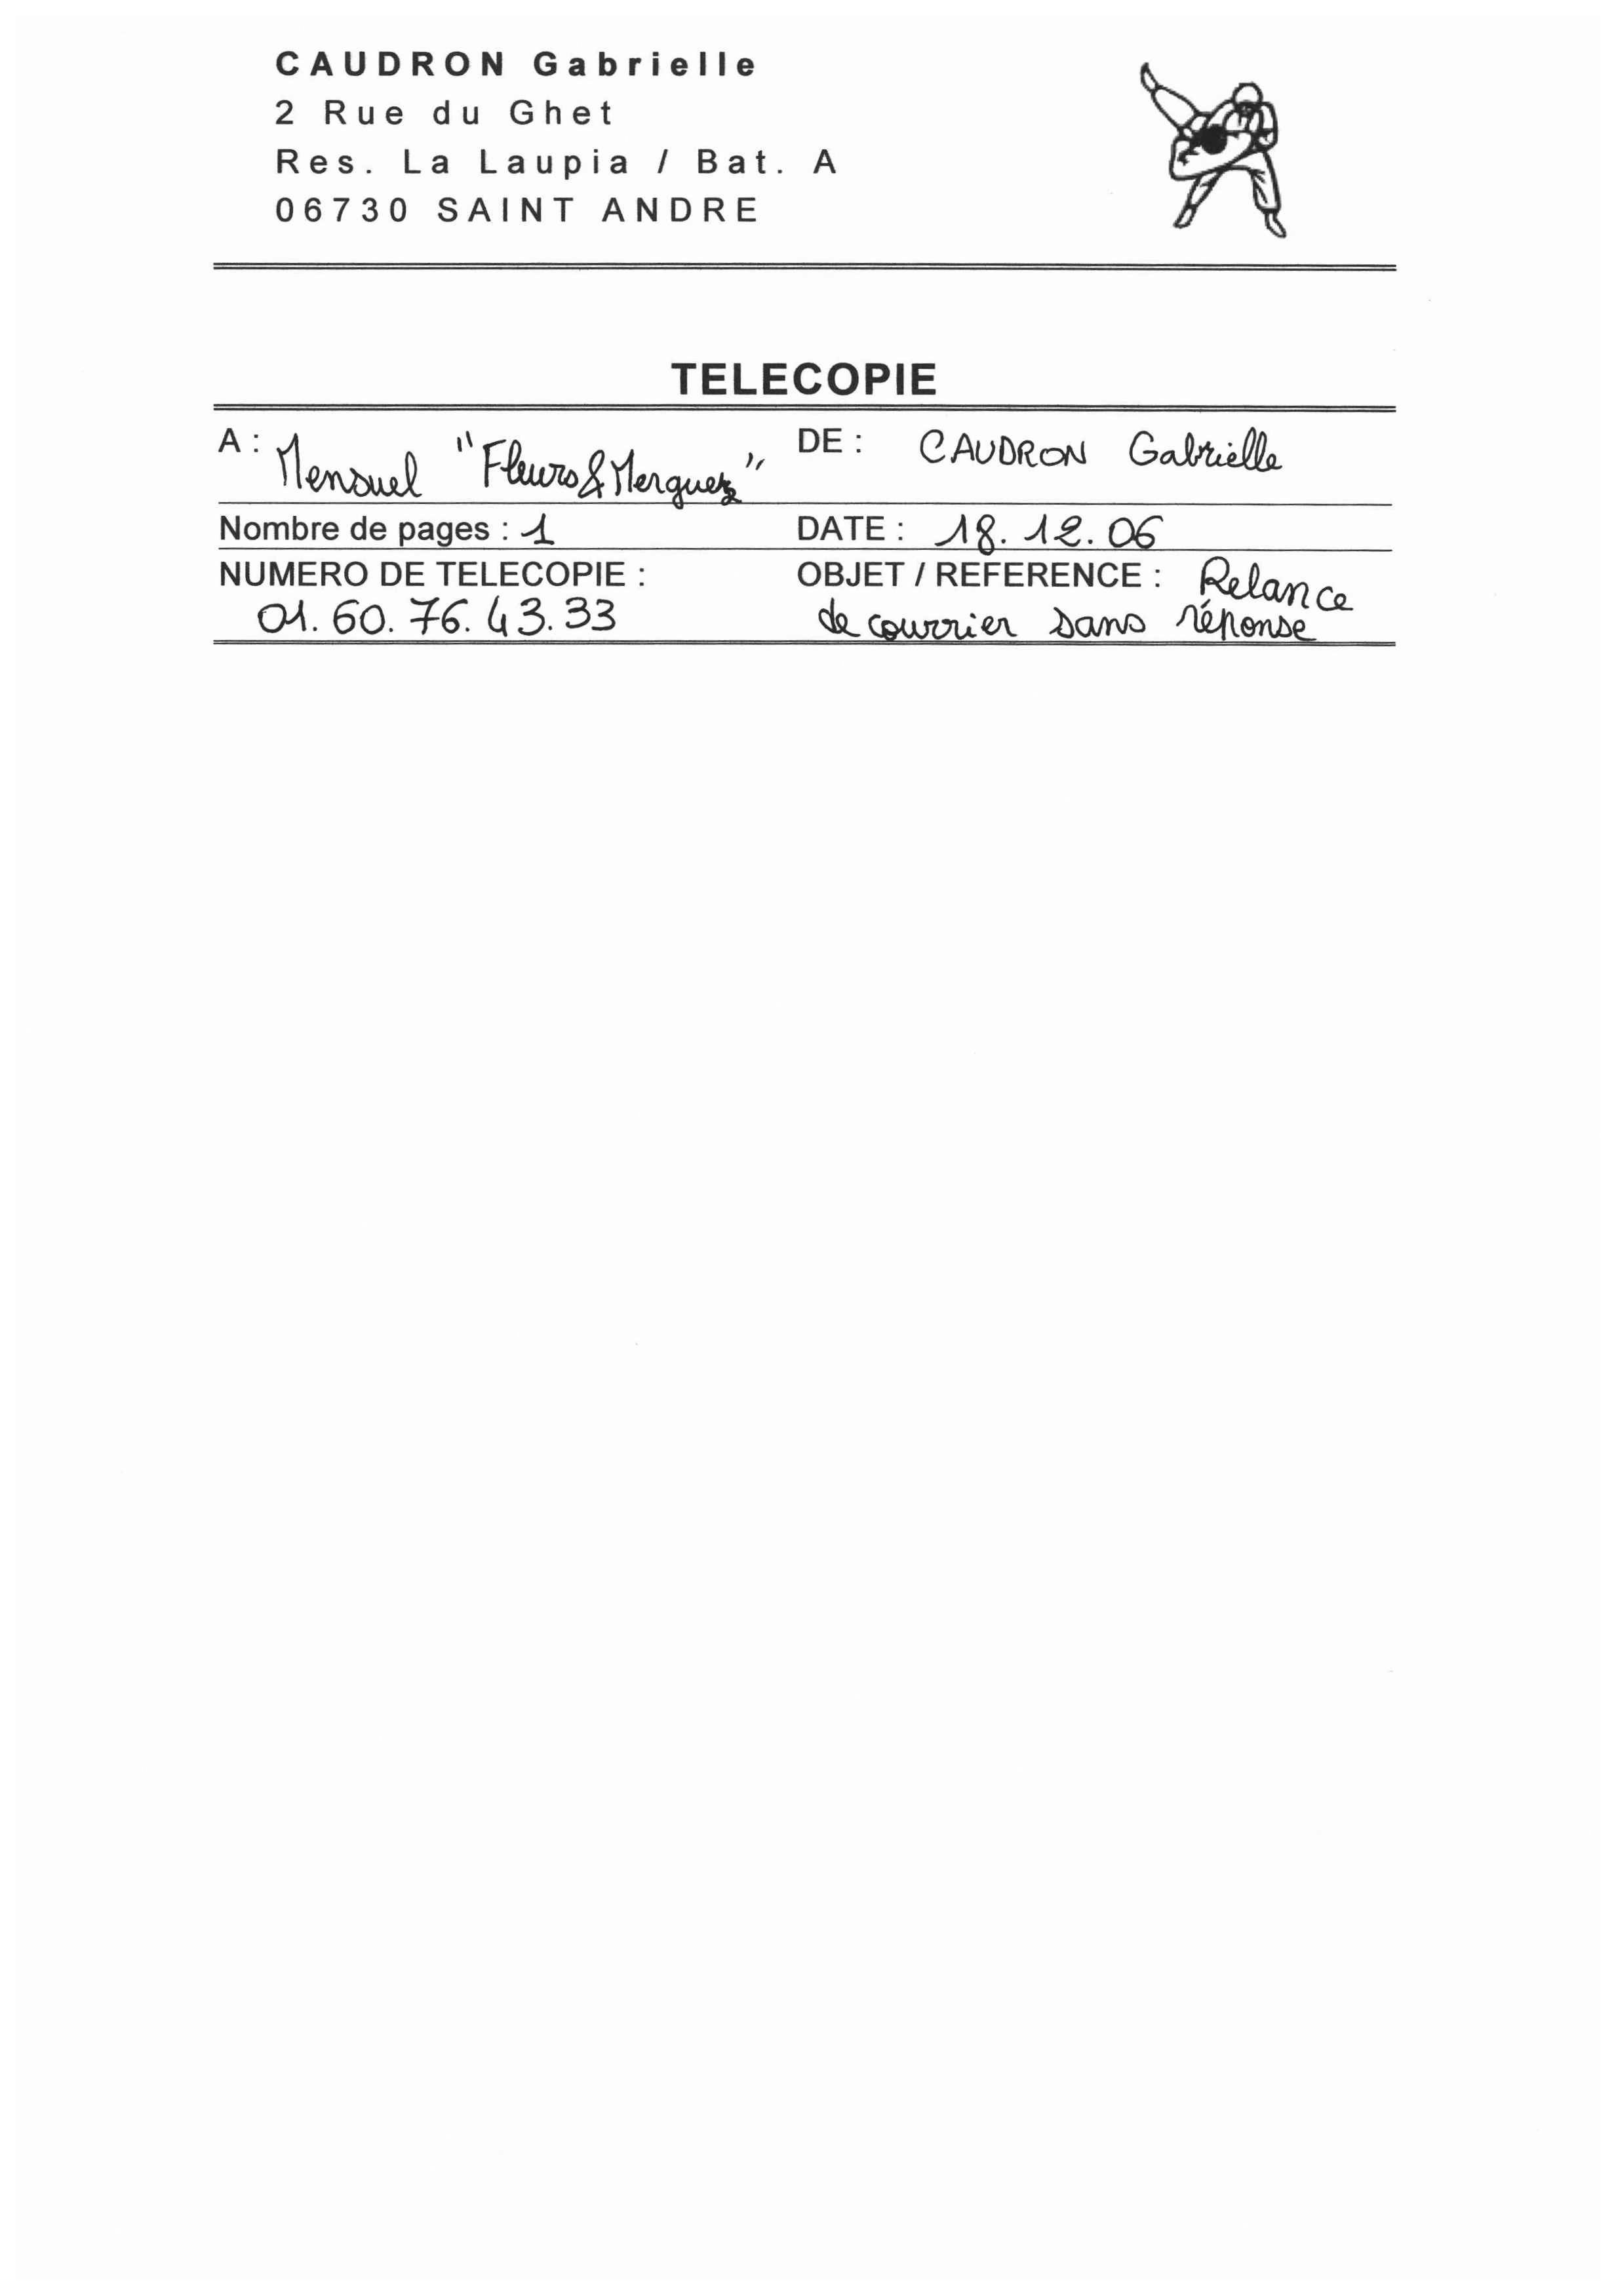 CAUDRON Gabrielle
2 Rue du Ghet
Res. La Laupia / Bat. A
06730 SAINT ANDRE
TELECOPIE
A : Mensuel "Fleurs & Merguez"
DE : CAUDRON Gabrielle
Nombre de pages : 1
DATE : 18.12.06
NUMERO DE TELECOPIE :
01.60.76.43.33
OBJET / REFERENCE : Relance
de courrier sans réponse